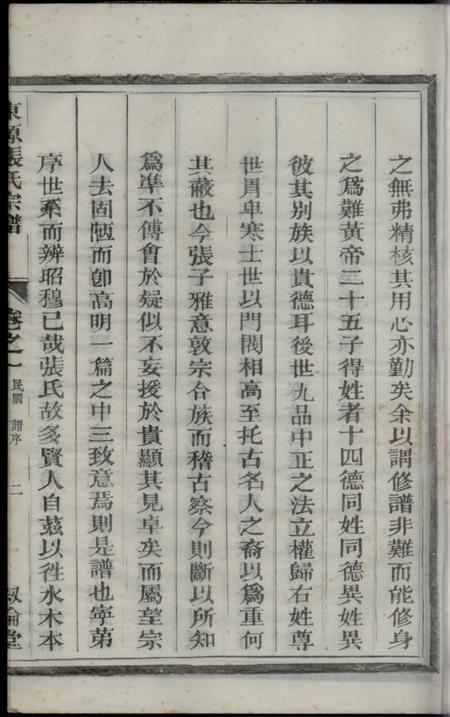 之無弗精核其用心亦勤矣余以謂修譜非難而能修身
之爲難黃帝二十五子得姓者十四德同姓同德異姓異
彼其別族以貴德耳後世九品中正之法立權歸右姓尊
世胄卑寒士世以門閥相高至托古名人之裔以爲重何
其蔽也今張子雅意敦宗合族而稽古察今則斷以所知
爲準不傅會於疑似不妄援於貴顯其見卓矣而屬望宗
人去固陋而卽高明一篇之中三致意焉則是譜也寧第
序世系而辨昭穆已哉張氏故多賢人自茲以徃水木本
東源張氏宗譜
卷之一
民國
譜序
二
叙倫堂